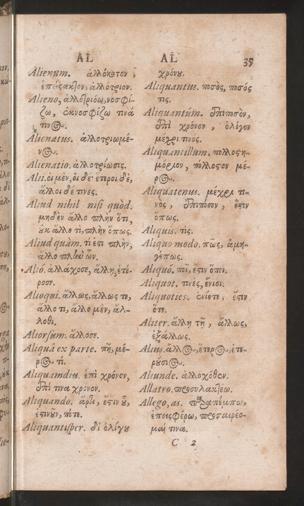 AL AL 35
Alienum. ἀλλόκοτον,
ἐπείσακτον, ἀλλότριον.
Alieno, ἀλλοτριόω, νοσφί-
ζω, ἐκνοσφίζω τινά
τινος.
Alienatus. ἀλλοτριωμέ-
νος.
Alienatio. ἀλλοτρίωσις.
Alii. οἱ μὲν, οἱ δὲ ἕτεροι δὲ,
ἄλλοι δέ τινες.
Aliud nihil nisi quòd.
μηδὲν ἄλλο πλὴν ὅτι,
ἐκ ἄλλο τι, πλὴν ὅπως.
Aliud quàm. τί ἐστι πλὴν,
ἄλλο πλὴν
Aliò, ἀλλάχοσε, ἄλλῃ, ἑτέ-
ρωσε.
Alioqui. ἄλλως, ἄλλως τε,
ἄλλο τι, ἄλλο μὲν, ἀλ-
λοθι.
Aliorsum. ἄλλοσε.
Aliqua ex parte. πῇ, μέ-
ρος τι.
Aliquamdiu. ἐπὶ χρόνον,
ἐπί τινα χρόνον.
Aliquando. ἔστιν οὗ,
ποτὲ.
Aliquantisper. δι' ὀλίγου
χρόνου.
Aliquantus. ποσὸς, πόσος
τις.
Aliquantùm. ἐπιποσὸν,
ἐπὶ χρόνον, ὀλίγον
μέχρι τινος.
Aliquantillum. πολλοστη-
μόριον, πολλοστὸν μέ-
ρος.
Aliquatenus. μέχρι τι-
νὸς, ἐπιποσὸν, ἔστιν
ὅπως.
Aliquis. τὶς.
Aliquo modo. πὼς, ἀμη-
γέπως.
Aliquò. ποῖ, ἔστιν ὅποι.
Aliquot. τινὲς, ἔνιοι.
Aliquoties. ἐνίοτε, ἔστιν
ὅτε.
Aliter. ἄλλη τῇ, ἄλλως,
ἐξάλλως.
Alius. ἄλλος, ἕτερος, ἑτε-
Aliunde. ἀλλαχόθεν.
Allatro. προσυλακτέω.
Allego, as. παραπέμπω,
ἐπεισφέρω, προσαιρέο-
μαί τινα.
C 2